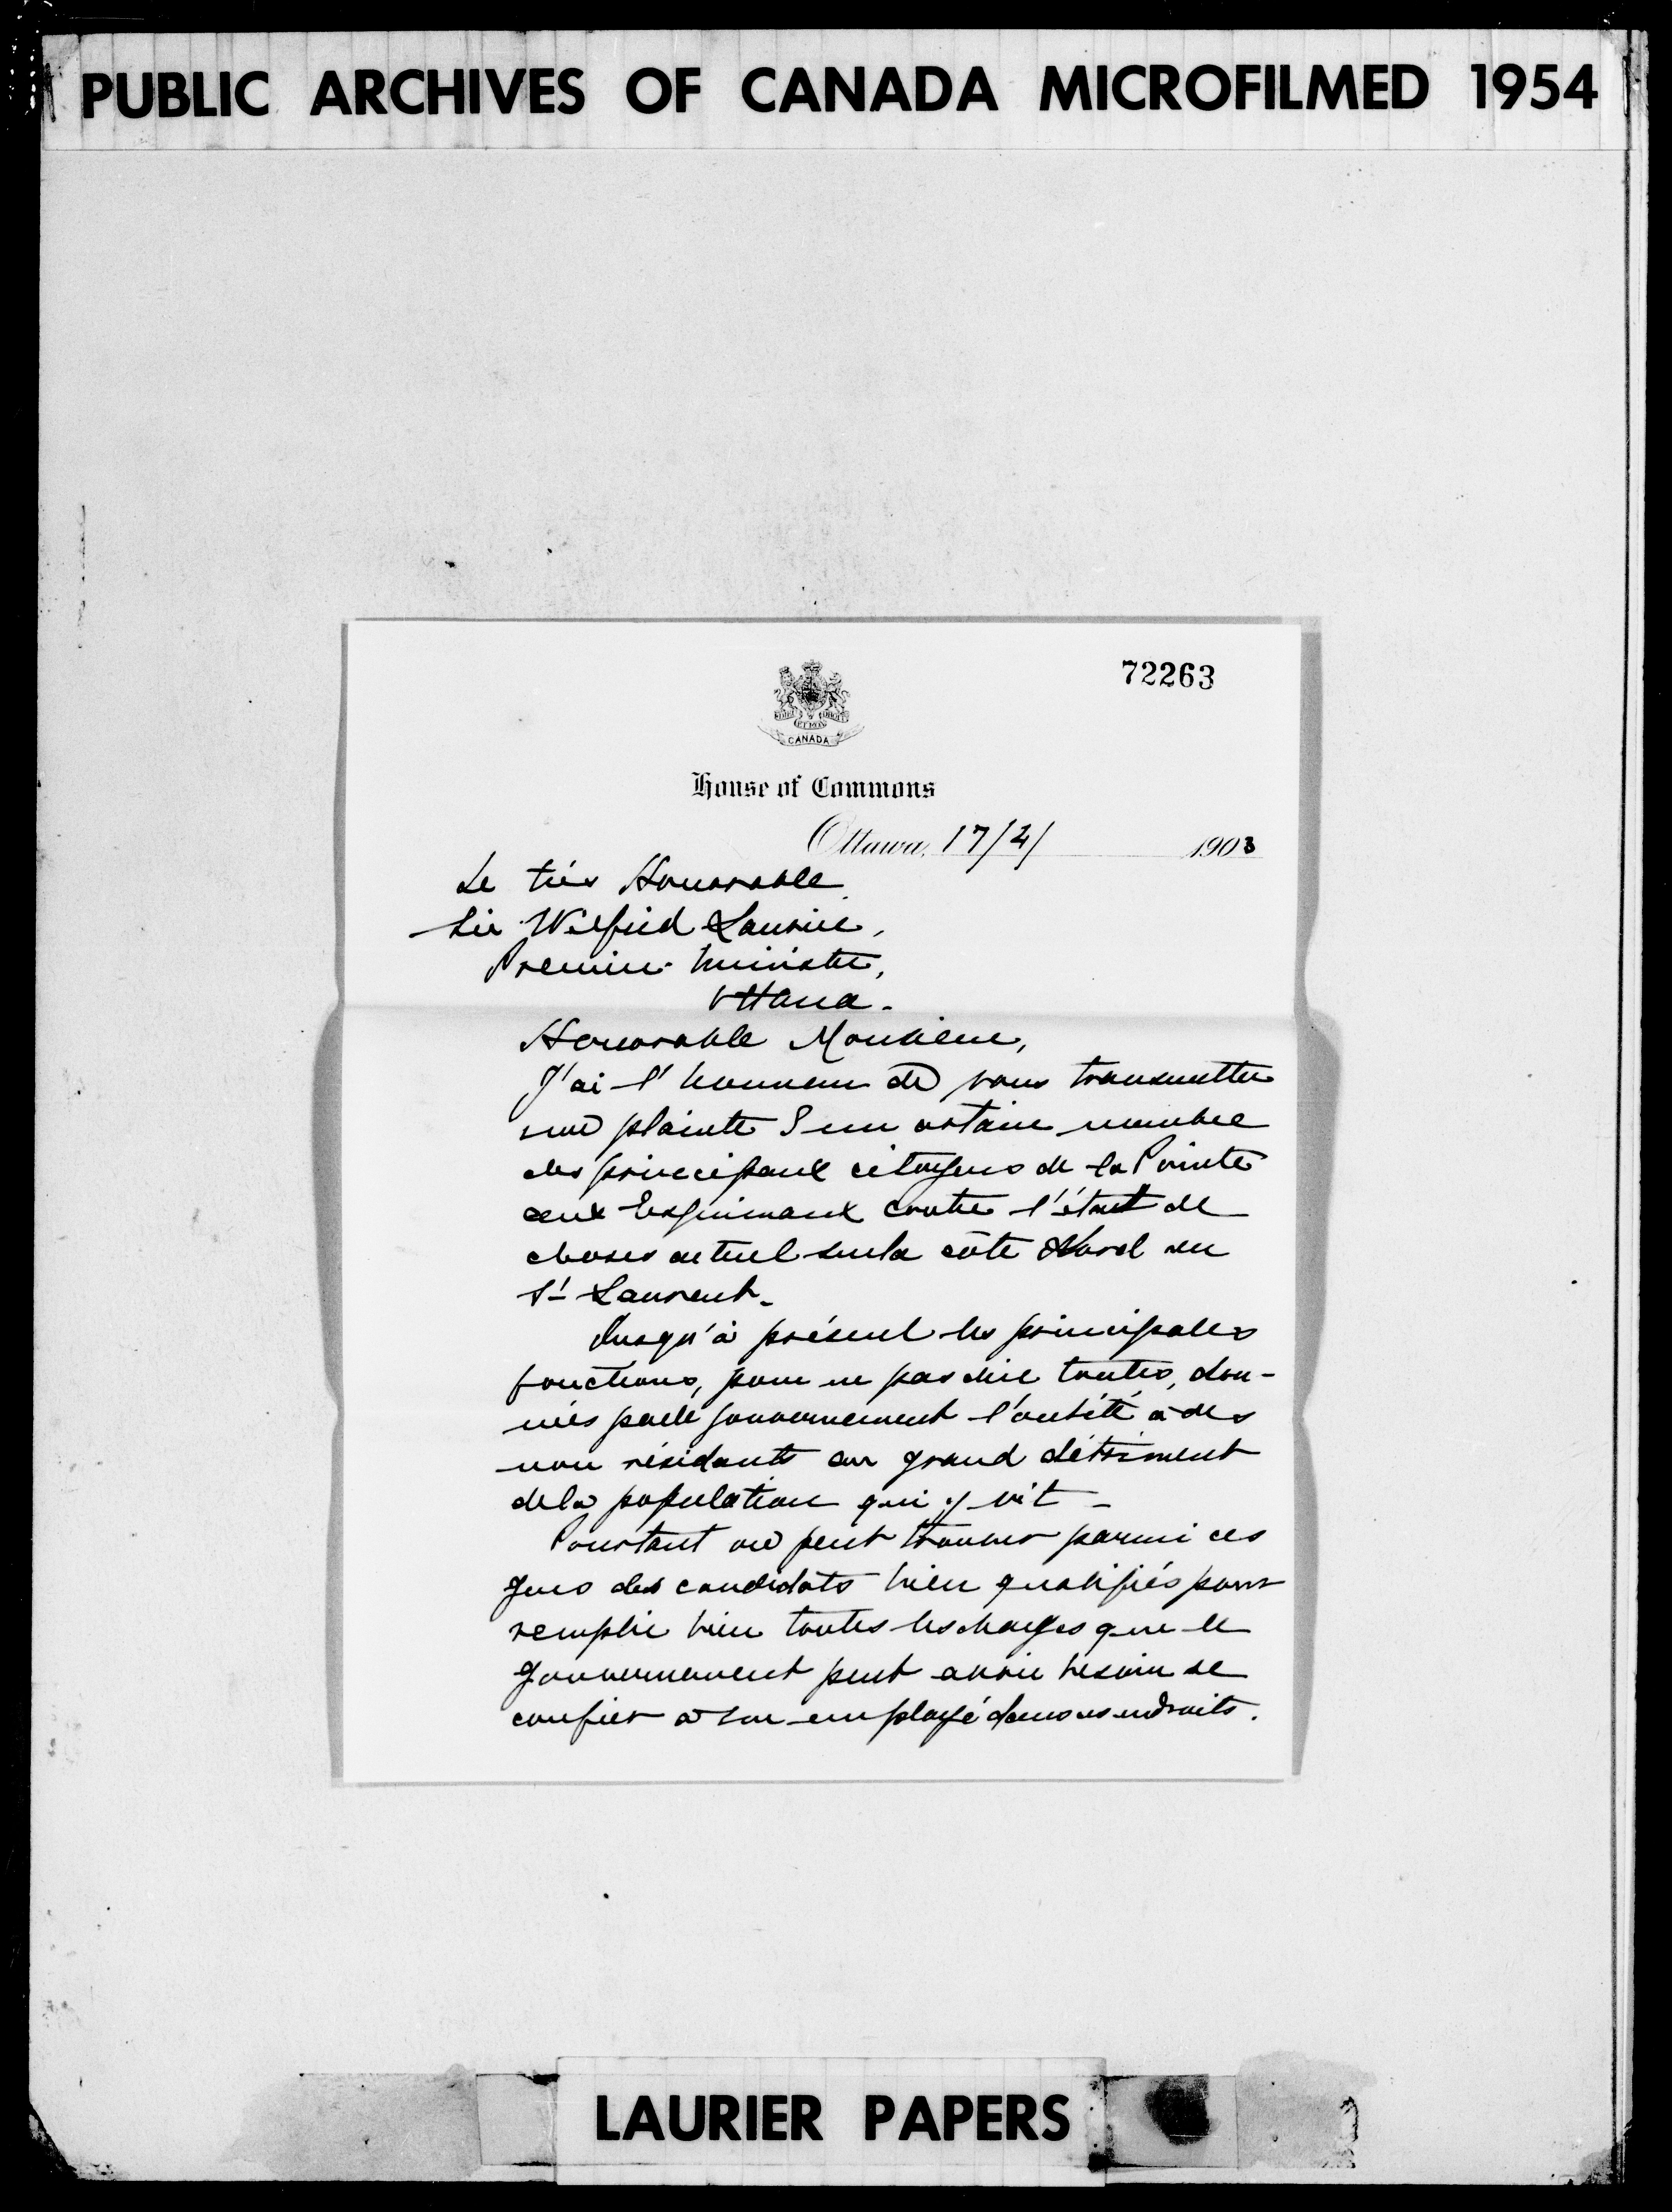 PUBLIC ARCHIVES OF CANADA MICROFILMED 1954
72263
CANADA
House of Commons
Ottawa, 17/4/ 1903
Le très Honorable
Sir Wilfrid Laurier,
Premier Ministre,
Ottawa.
Honorable Monsieur,
J'ai l'honneur de vous transmettre
une plainte d'un certain nombre
des principaux citoyens de la Pointe
aux Esquimaux contre l'état de
choses actuel sur la côte Nord du
St Laurent.
Jusqu'à présent les principales
fonctions, pour ne pas dire toutes, don-
nées par le gouvernement l'ont été à des
non résidants au grand détriment
de la population qui y vit -
Pourtant on peut trouver parmi ces
gens des candidats bien qualifiés pour
remplir bien toutes les charges que le
gouvernement peut avoir besoin de
confier à son employé dans ces endroits.
LAURIER PAPERS